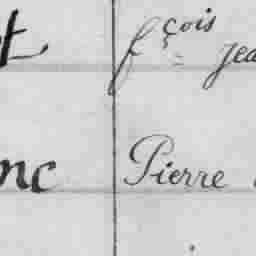 t fçois Jea
nc Pierre